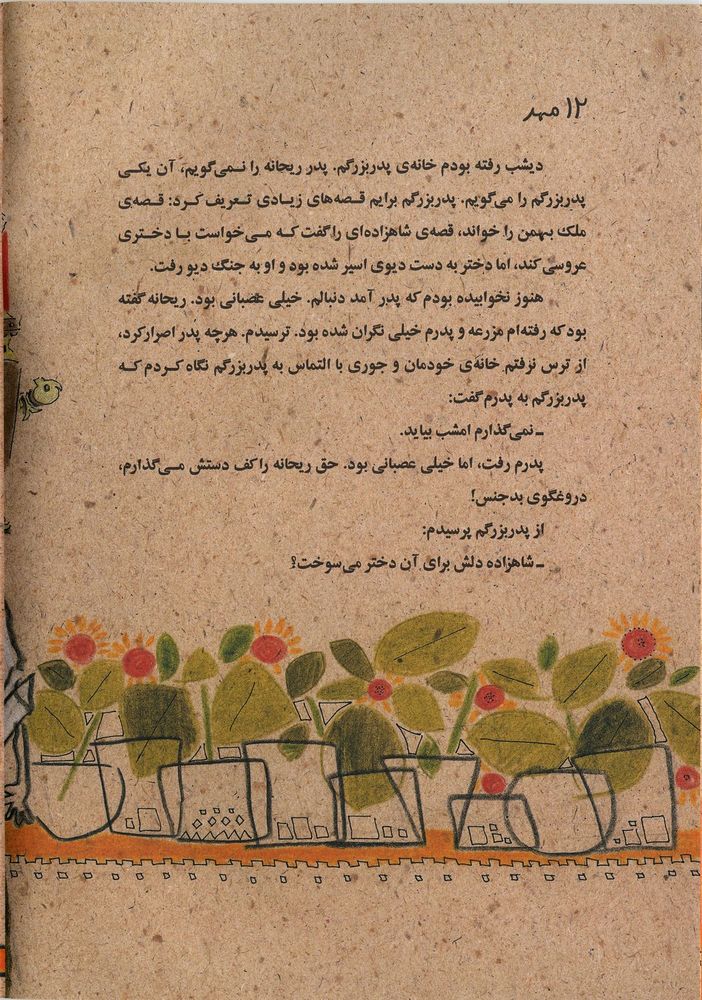 ۱۲ مهر
دیشب رفته بودم خانه‌ی پدربزرگم. پدر ریحانه را نـمی‌گویم، آن یکـی
پدربزرگم را می‌گویم. پدربزرگم برایم قـصه‌های زیـادی تـعریف کـرد: قـصه‌ی
ملک بهمن را خواند، قصه‌ی شاهزاده‌ای را گفت کـه مـی‌خواست بـا دخـتری
عروسی کند، اما دختر به دست دیوی اسیر شده بود و او به جنگ دیو رفت.
هنوز نخوابیده بودم که پدر آمد دنبالم. خیلی عصبانی بود. ریحانه گفته
بود که رفته‌ام مزرعه و پدرم خیلی نگران شده بود. ترسیدم. هرچه پدر اصرار کرد،
از ترس نرفتم خانه‌ی خودمان و جوری با التماس به پدربزرگم نگاه کـردم کـه
پدربزرگم به پدرم گفت:
ـ نمی‌گذارم امشب بیاید.
پدرم رفت، اما خیلی عصبانی بود. حق ریحانه را کف دستش مـی‌گذارم،
دروغگوی بدجنس!
از پدربزرگم پرسیدم:
ـ شاهزاده دلش برای آن دختر می‌سوخت؟